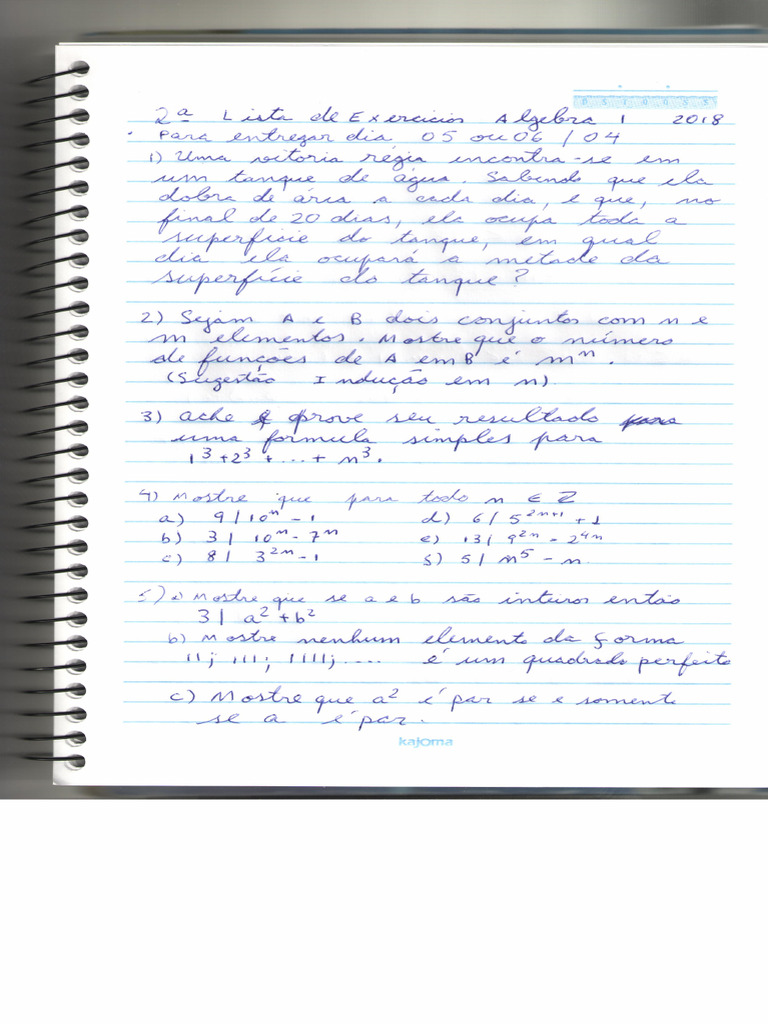 2ª Lista de Exercicios Algebra 1 2018
Para entregar dia 05 ou 06 / 04
1) Uma vitoria régia encontra-se em
um tanque de água. Sabendo que ela
dobra de área a cada dia, e que, no
final de 20 dias, ela ocupa toda a
superficie do tanque, em qual
dia ela ocupará a metade da
superfície do tanque?
2) Sejam A e B dois conjuntos com n e
m elementos. Mostre que o número
de funções de A em B é mⁿ.
(Sugestão Indução em n).
3) Ache e prove seu resultado para
uma formula simples para
1³+2³+...+n³.
4) Mostre que para todo n ∈ Z
a) 9 | 10ⁿ - 1 d) 6 | 5²ⁿ⁺¹ + 1
b) 3 | 10ⁿ - 7ⁿ e) 13 | 9²ⁿ - 2⁴ⁿ
c) 8 | 3²ⁿ - 1 f) 5 | n⁵ - n
5) a) Mostre que se a e b são inteiros então
3 | a² + b²
b) Mostre nenhum elemento da forma
11; 111; 1111; .... é um quadrado perfeito
c) Mostre que a² é par se e somente
se a é par.
kajoma